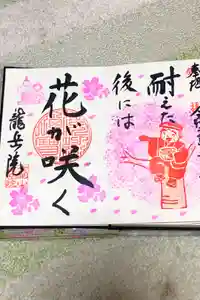 奉拝
耐えた
後には
花が咲く
龍岳院